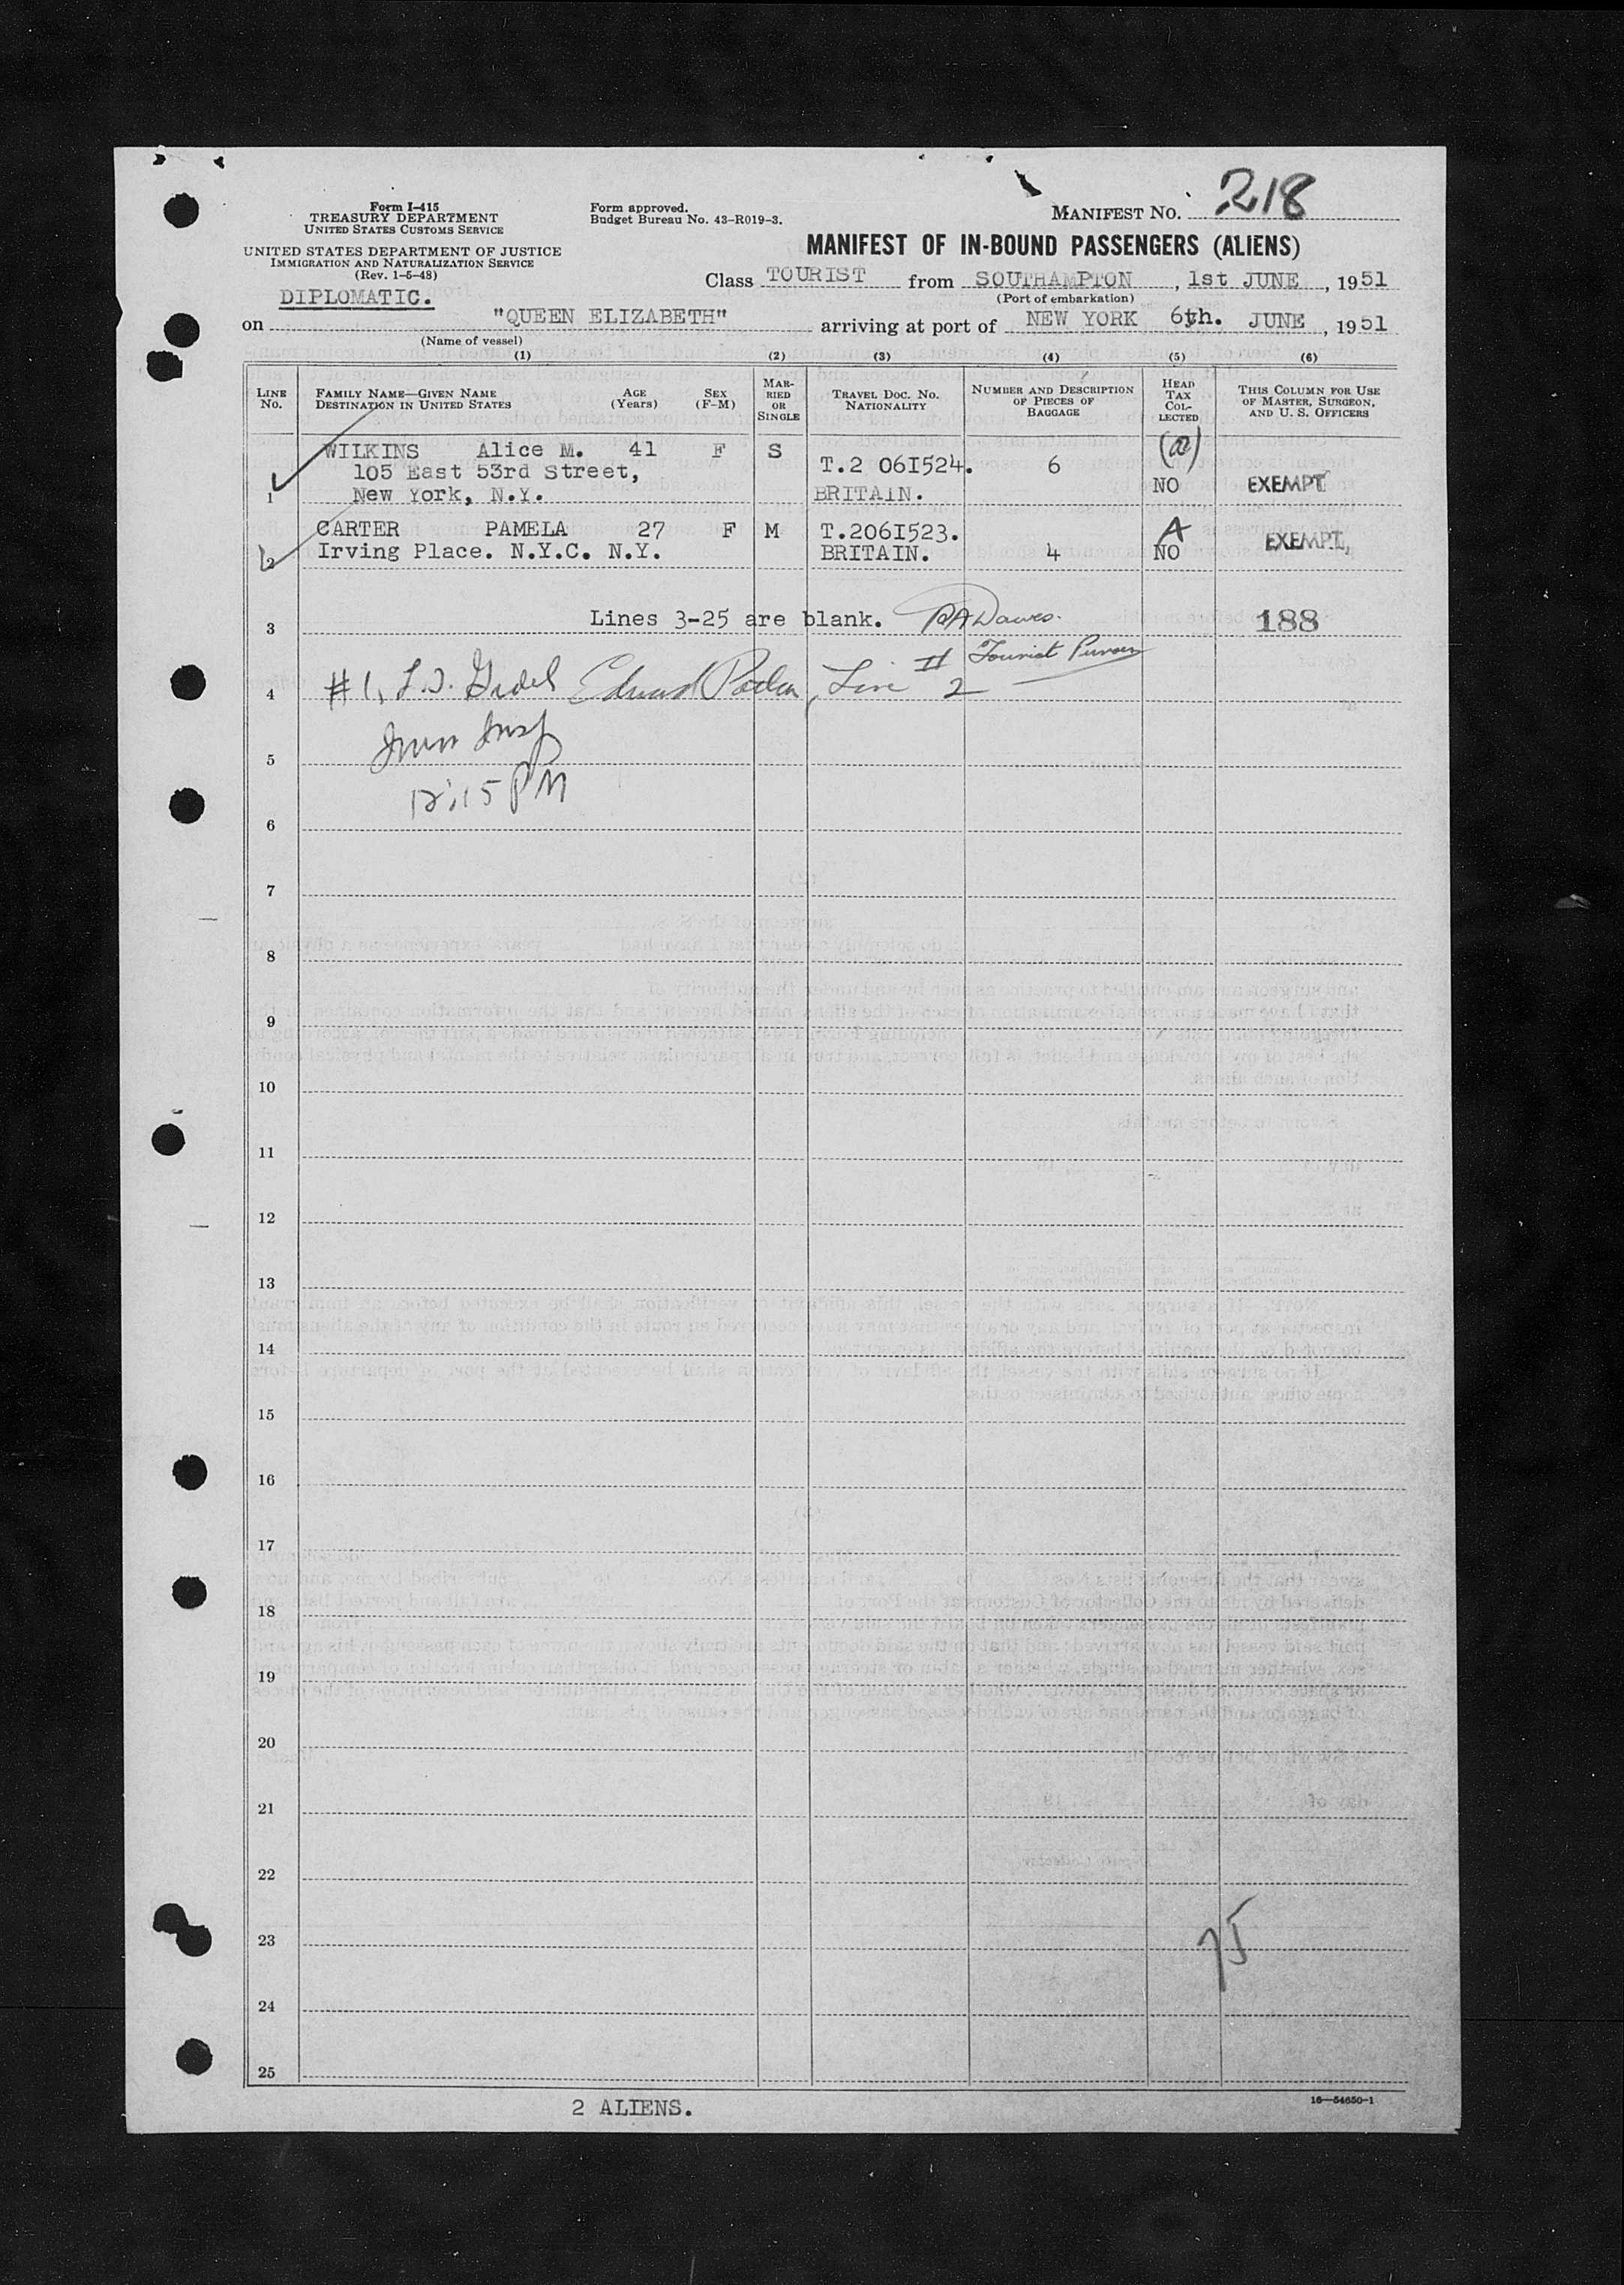 Form I-415
TREASURY DEPARTMENT
UNITED STATES CUSTOMS SERVICE
UNITED STATES DEPARTMENT OF JUSTICE
IMMIGRATION AND NATURALIZATION SERVICE
(Rev. 1-5-48)
Form approved.
Budget Bureau No. 43-R019-3.
MANIFEST NO. 218
MANIFEST OF IN-BOUND PASSENGERS (ALIENS)
Class TOURIST from SOUTHAMPTON, 1st JUNE, 1951
(Port of embarkation)
DIPLOMATIC.
on "QUEEN ELIZABETH" arriving at port of NEW YORK 6th. JUNE, 1951
(Name of vessel)
(1) (2) (3) (4) (5) (6)
LINE NO.
FAMILY NAME—GIVEN NAME
DESTINATION IN UNITED STATES
AGE (Years)
SEX (F-M)
MARRIED OR SINGLE
TRAVEL DOC. NO.
NATIONALITY
NUMBER AND DESCRIPTION
OF PIECES OF
BAGGAGE
HEAD TAX COLLECTED
THIS COLUMN FOR USE
OF MASTER, SURGEON,
AND U. S. OFFICERS
1 WILKINS Alice M. 41 F S T.2 061524. 6 (a)
105 East 53rd Street,
New York, N.Y. BRITAIN. NO EXEMPT
2 CARTER PAMELA 27 F M T.2061523. A
Irving Place. N.Y.C. N.Y. BRITAIN. 4 NO EXEMPT.
3 Lines 3-25 are blank. 188
Tourist Purser
4 #1, Line # 2
5 Imm Insp
12:15 PM
6
7
8
9
10
11
12
13
14
15
16
17
18
19
20
21
22
23
75
24
25
2 ALIENS.
16-54650-1